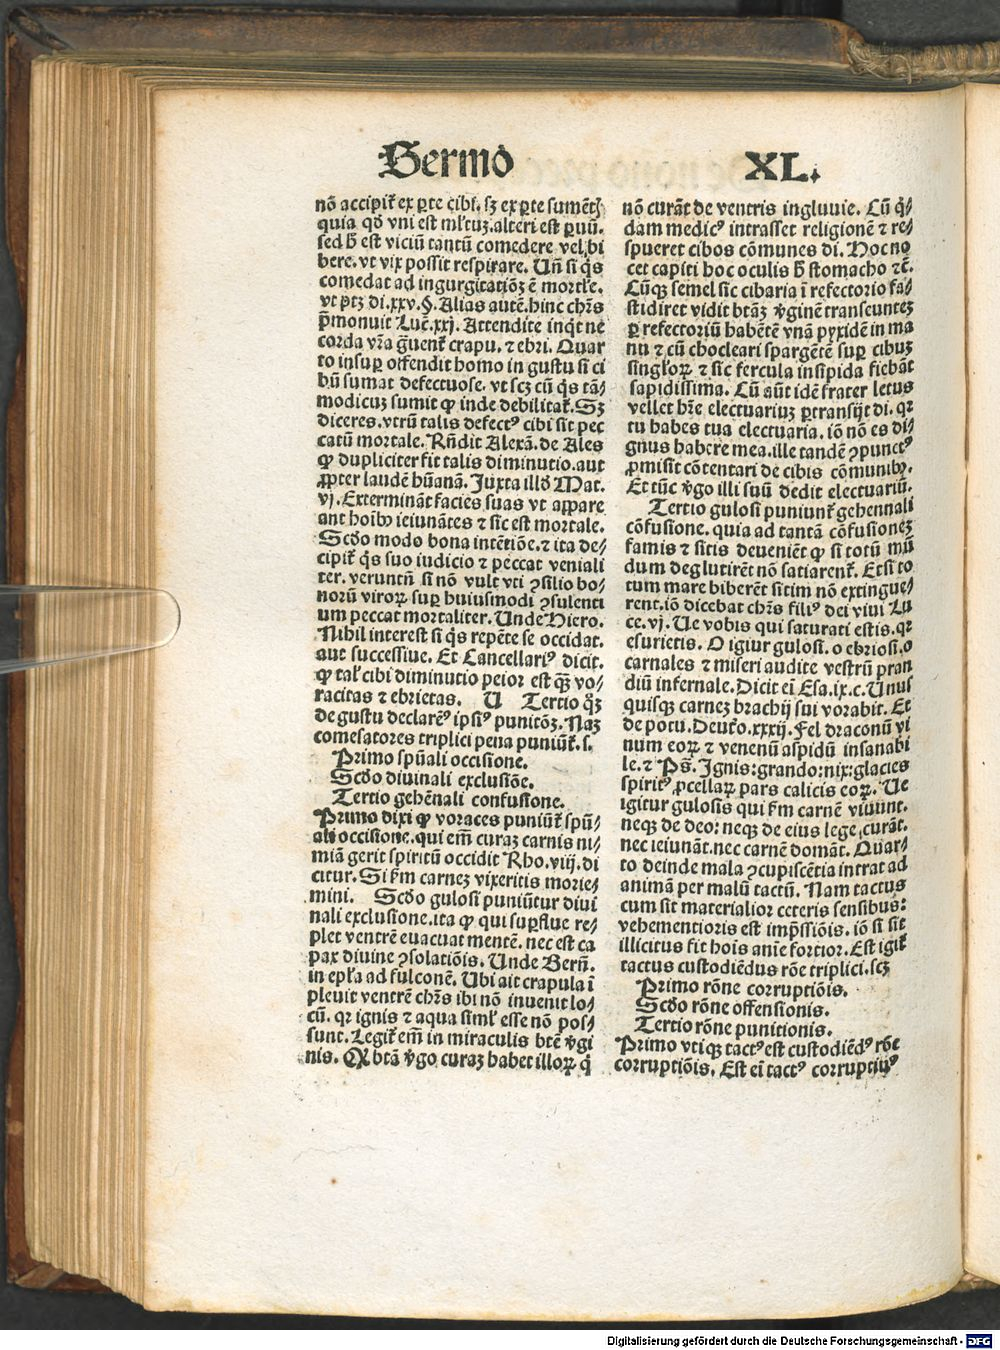 Sermo XL.
nō accipit᷑ ex ꝑte cibi. sꝫ ex ꝑte sumētꝭ
quia qđ vni est ml̄tuꝫ. alteri est ꝑuū.
sed h̄ est viciū tantū comedere vel bi
bere. vt vix possit respirare. Vn̄ si q̇s
comedat ad ingurgitatiōꝫ ē mortl̄e.
vt ptꝫ di. xxv. §. Alias autē. hinc chr̄s
p̄monuit Luc̄. xxj. Attendite inq̇t ne
corda vr̄a g̃uent᷑ crapu. ⁊ ebri. Quar
to insuꝑ offendit homo in gustu si ci
bū sumat defectuose. vt scꝫ cū q̇s tā⸗
modicuꝫ sumit ꝙ inde debilitat᷑. Sꝫ
diceres. vtrū talis defectꝰ cibi sit pec
catū mortale. Rn̄dit Alexā. de Ales
ꝙ dupliciter fit talis diminutio. aut
ꝓpter laudē hūanā. Juxta illđ Mat.
vj. Extermināt facies suas vt appare
ant hoībꝰ ieiunātes ⁊ sic est mortale.
Scđo modo bona intētiōe. ⁊ ita de⸗
cipit᷑ q̇s suo iudicio ⁊ peccat veniali
ter. veruntn̄ si nō vult vti ꝯsilio bo⸗
norū viroꝝ suꝑ huiusmodi ꝯsulenti
um peccat mortaliter. Unde Hiero.
Nihil interest si q̇s repēte se occidat.
aut successiue. Et Cancellariꝰ dicit.
ꝙ tal᷑ cibi diminutio peior est q̄ꝫ vo⸗
racitas ⁊ ebrietas. V Tertio q̊ꝫ
de gustu declarēꝰ ipsiꝰ punitōꝫ. Naꝫ
comesatores triplici pena puniūt᷑. s.
Primo spūali occisione.
Scđo diuinali exclusiōe.
Tertio gehēnali confusione.
Primo dixi ꝙ voraces puniūt᷑ spū⸗
ali occisione. qui em̄ curaꝫ carnis ni⸗
miā gerit spiritū occidit Rho. viij. di
citur. Si ẜm carneꝫ vixeritis morie⸗
mini. Scđo gulosi puniūtur diui
nali exclusione. ita ꝙ qui suꝑflue re⸗
plet ventrē euacuat mentē. nec est ca
pax diuine ꝯsolatiōis. Unde Bern̄.
in epl̄a ad fulconē. Ubi ait crapula ī
pleuit ventrē chr̄s ibi nō inuenit lo⸗
cū. qꝛ ignis ⁊ aqua siml᷑ esse nō pos⸗
sunt. Legit᷑ em̄ in miraculis btē ꝟgi
nis. Qꝛ btā ꝟgo curaꝫ habet illoꝝ q̇
nō curāt de ventris ingluuie. Cū q̇⸗
dam medicꝰ intrasset religionē ⁊ re⸗
spueret cibos cōmunes di. Hoc no
cet capiti hoc oculis h̄ stomacho ⁊c̄.
Cūqꝫ semel sic cibaria ī refectorio fa⸗
stidiret vidit btāꝫ ꝟginē transeunteꝫ
ꝑ refectoriū habētē vnā pyxidē in ma
nu ⁊ cū chocleari spargētē suꝑ cibuꝫ
singl᷑oꝝ ⁊ sic fercula insipida fiebāt
sapidissima. Cū aūt idē frater letus
vellet hr̄e electuariuꝫ ꝑtransijt di. qꝛ
tu habes tua electuaria. iō nō es di⸗
gnus habere mea. ille tandē ꝯpunctꝰ
ꝓmisit cōtentari de cibis cōmunibꝰ.
Et tūc ꝟgo illi suū dedit electuariū.
Tertio gulosi puniunt᷑ gehennali
cōfusione. quia ad tantā cōfusioneꝫ
famis ⁊ sitis deueniēt ꝙ si totū mū
dum deglutirēt nō satiarent᷑. Et si to
tum mare biberēt sitim nō extingue⸗
rent. iō dicebat chr̄s filiꝰ dei viui Lu
ce. vj. Ue vobis qui saturati estis. qꝛ
esurietis. O igiur gulosi. o ebriosi. o
carnales ⁊ miseri audite vestrū pran
diū infernale. Dicit eī Esa. ix. c. Unus
quisqꝫ carneꝫ brachij sui vorabit. Et
de potu. Deut᷑o. xxxij. Fel draconū vi
num eoꝝ ⁊ venenū aspidū insanabi
le. ⁊ Pš. Ignis: grando: nix: glacies
spiritꝰ ꝓcellaꝝ pars calicis eoꝝ. Ue
igitur gulosis qui ẜm carnē viuunt.
neqꝫ de deo: neqꝫ de eius lege curāt.
nec ieiunāt. nec carnē domāt. Quar⸗
to deinde mala ꝯcupiscētia intrat ad
animā per malū tactū. Nam tactus
cum sit materialior ceteris sensibus:
vehementioris est imp̄ssiōis. iō si sit
illicitus fit hoīs anīe fortior. Est igit᷑
tactus custodiēdus rōe triplici. scꝫ
Primo rōne corruptiōis.
Scđo rōne offensionis.
Tertio rōne punitionis.
Primo vtiqꝫ tactꝰ est custodiēdꝰ rōe
corruptiōis. Est eī tactꝰ corruptiuꝰ
Digitalisierung gefördert durch die Deutsche Forschungsgemeinschaft - DFG